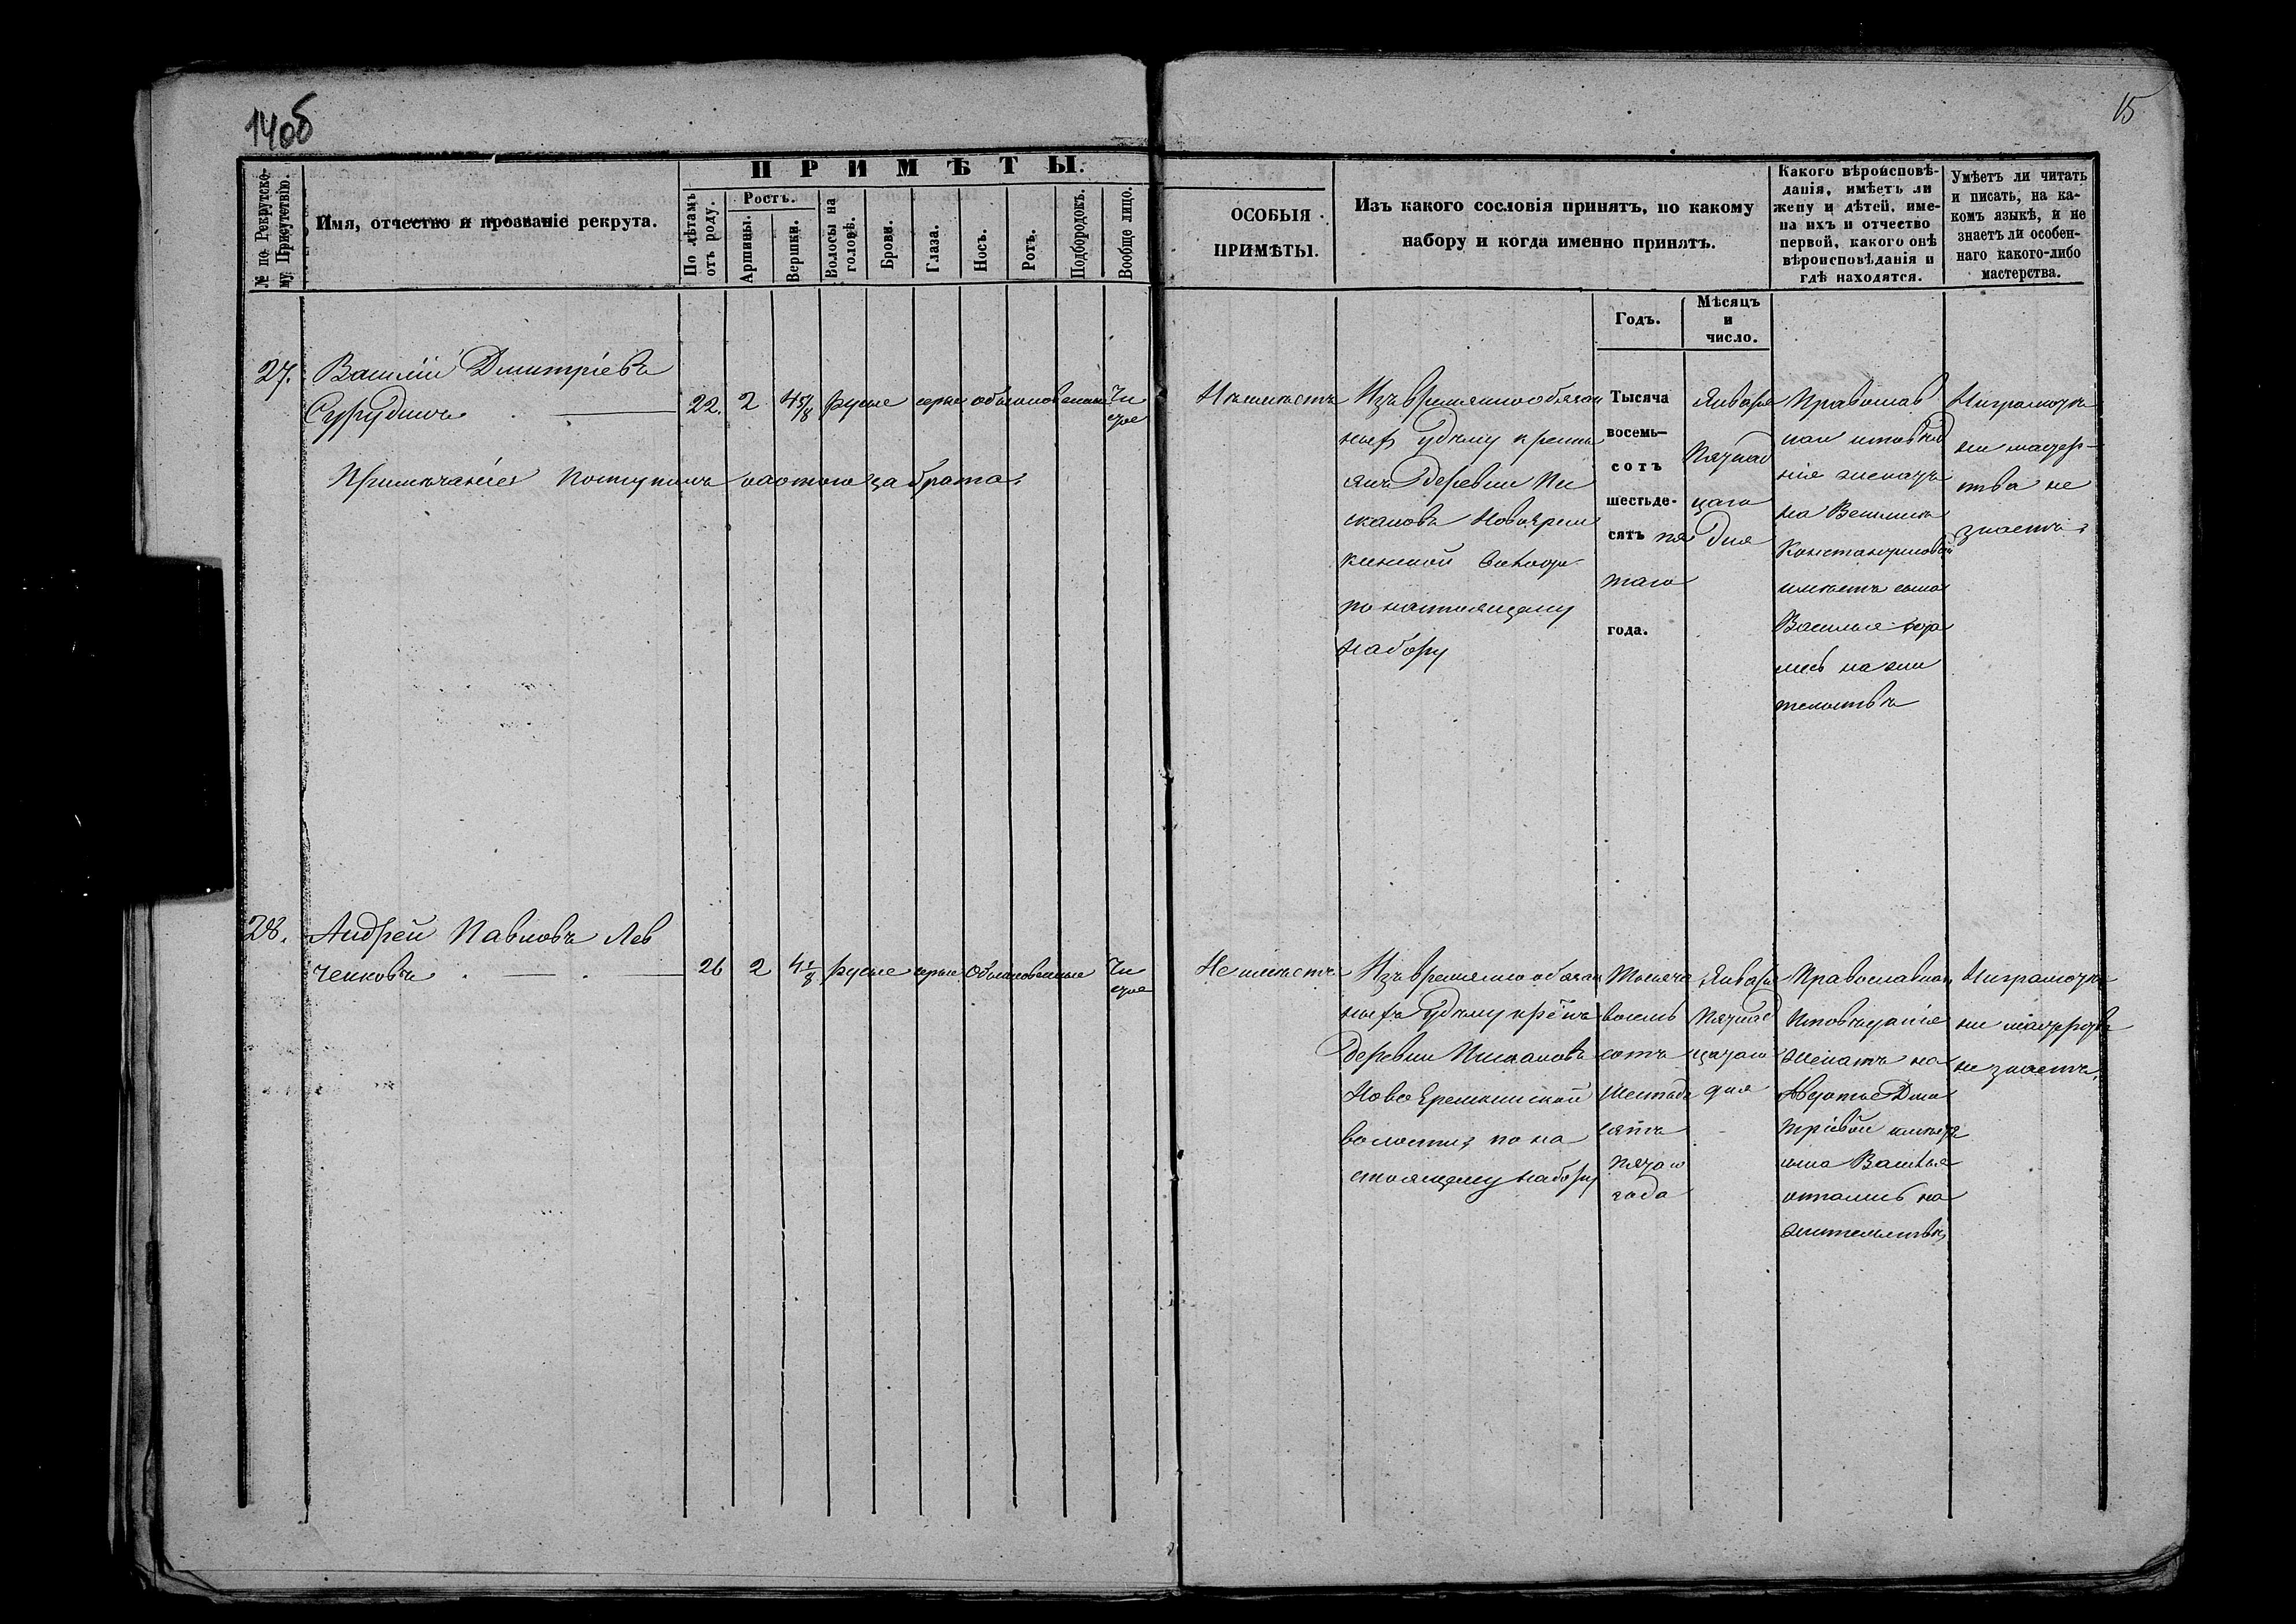 14об
15
ПРИМѢТЫ.
№ по Рекрутско-
му Присутствію.
Имя, отчество и прозваніе рекрута.
По лѣтамъ
отъ роду.
Ростъ.
Аршины.
Вершки.
Волосы на
головѣ.
Брови.
Глаза.
Носъ.
Ротъ.
Подбородокъ.
Вообще лицо.
ОСОБЫЯ
ПРИМѢТЫ.
Изъ какого сословія принятъ, по какому
набору и когда именно принятъ.
Годъ.
Мѣсяцъ
и
число.
Какого вѣроисповѣ-
данія, имѣетъ ли
жену и дѣтей, име-
на ихъ и отчество
первой, какого онѣ
вѣроисповѣданія и
гдѣ находятся.
Умѣетъ ли читать
и писать, на ка-
комъ языкѣ, и не
знаетъ ли особен-
наго какого-либо
мастерства.
27.
Василій Дмитріевъ
22.
2
4 5/8
русые
серые
обыкновенные
Чи
стое
Примечаніе: Поступилъ охотою за брата.
Изъ временнообязан
ныхъ Удѣлу кресть
янъ деревни
по настоящему
набору
Тысяча
восемь-
сотъ
шестьде-
сятъ пя
таго
года.
Января
Пятнад
цаго
дня
Православ
наго исповѣда
нія женатъ
на
Константиновой
имѣетъ сына
Василья оста
лись на жи
тельствѣ
Неграмотенъ
ни мастер-
ства не
знаетъ.
28.
Андрей Павловъ Лев
ченковъ
26
2
4 1/8
русые
серые
обыкновенные
Чи
стое
Не имѣетъ
Изъ временно обязан
ныхъ Удѣлу крѣстъ
деревни
Ново Еремкинской
волости, по на
стоящему набору
Тысяча
восемь
сотъ
шестьде
сятъ
пятаго
года
Января
Пятнад
цатаго
дня
Православнаго
Исповѣданія
женатъ на
Авдотье Дми
тріевой имѣетъ
сына Василья
остались на
жительствѣ
Неграмотенъ
ни мастерства
не знаетъ.